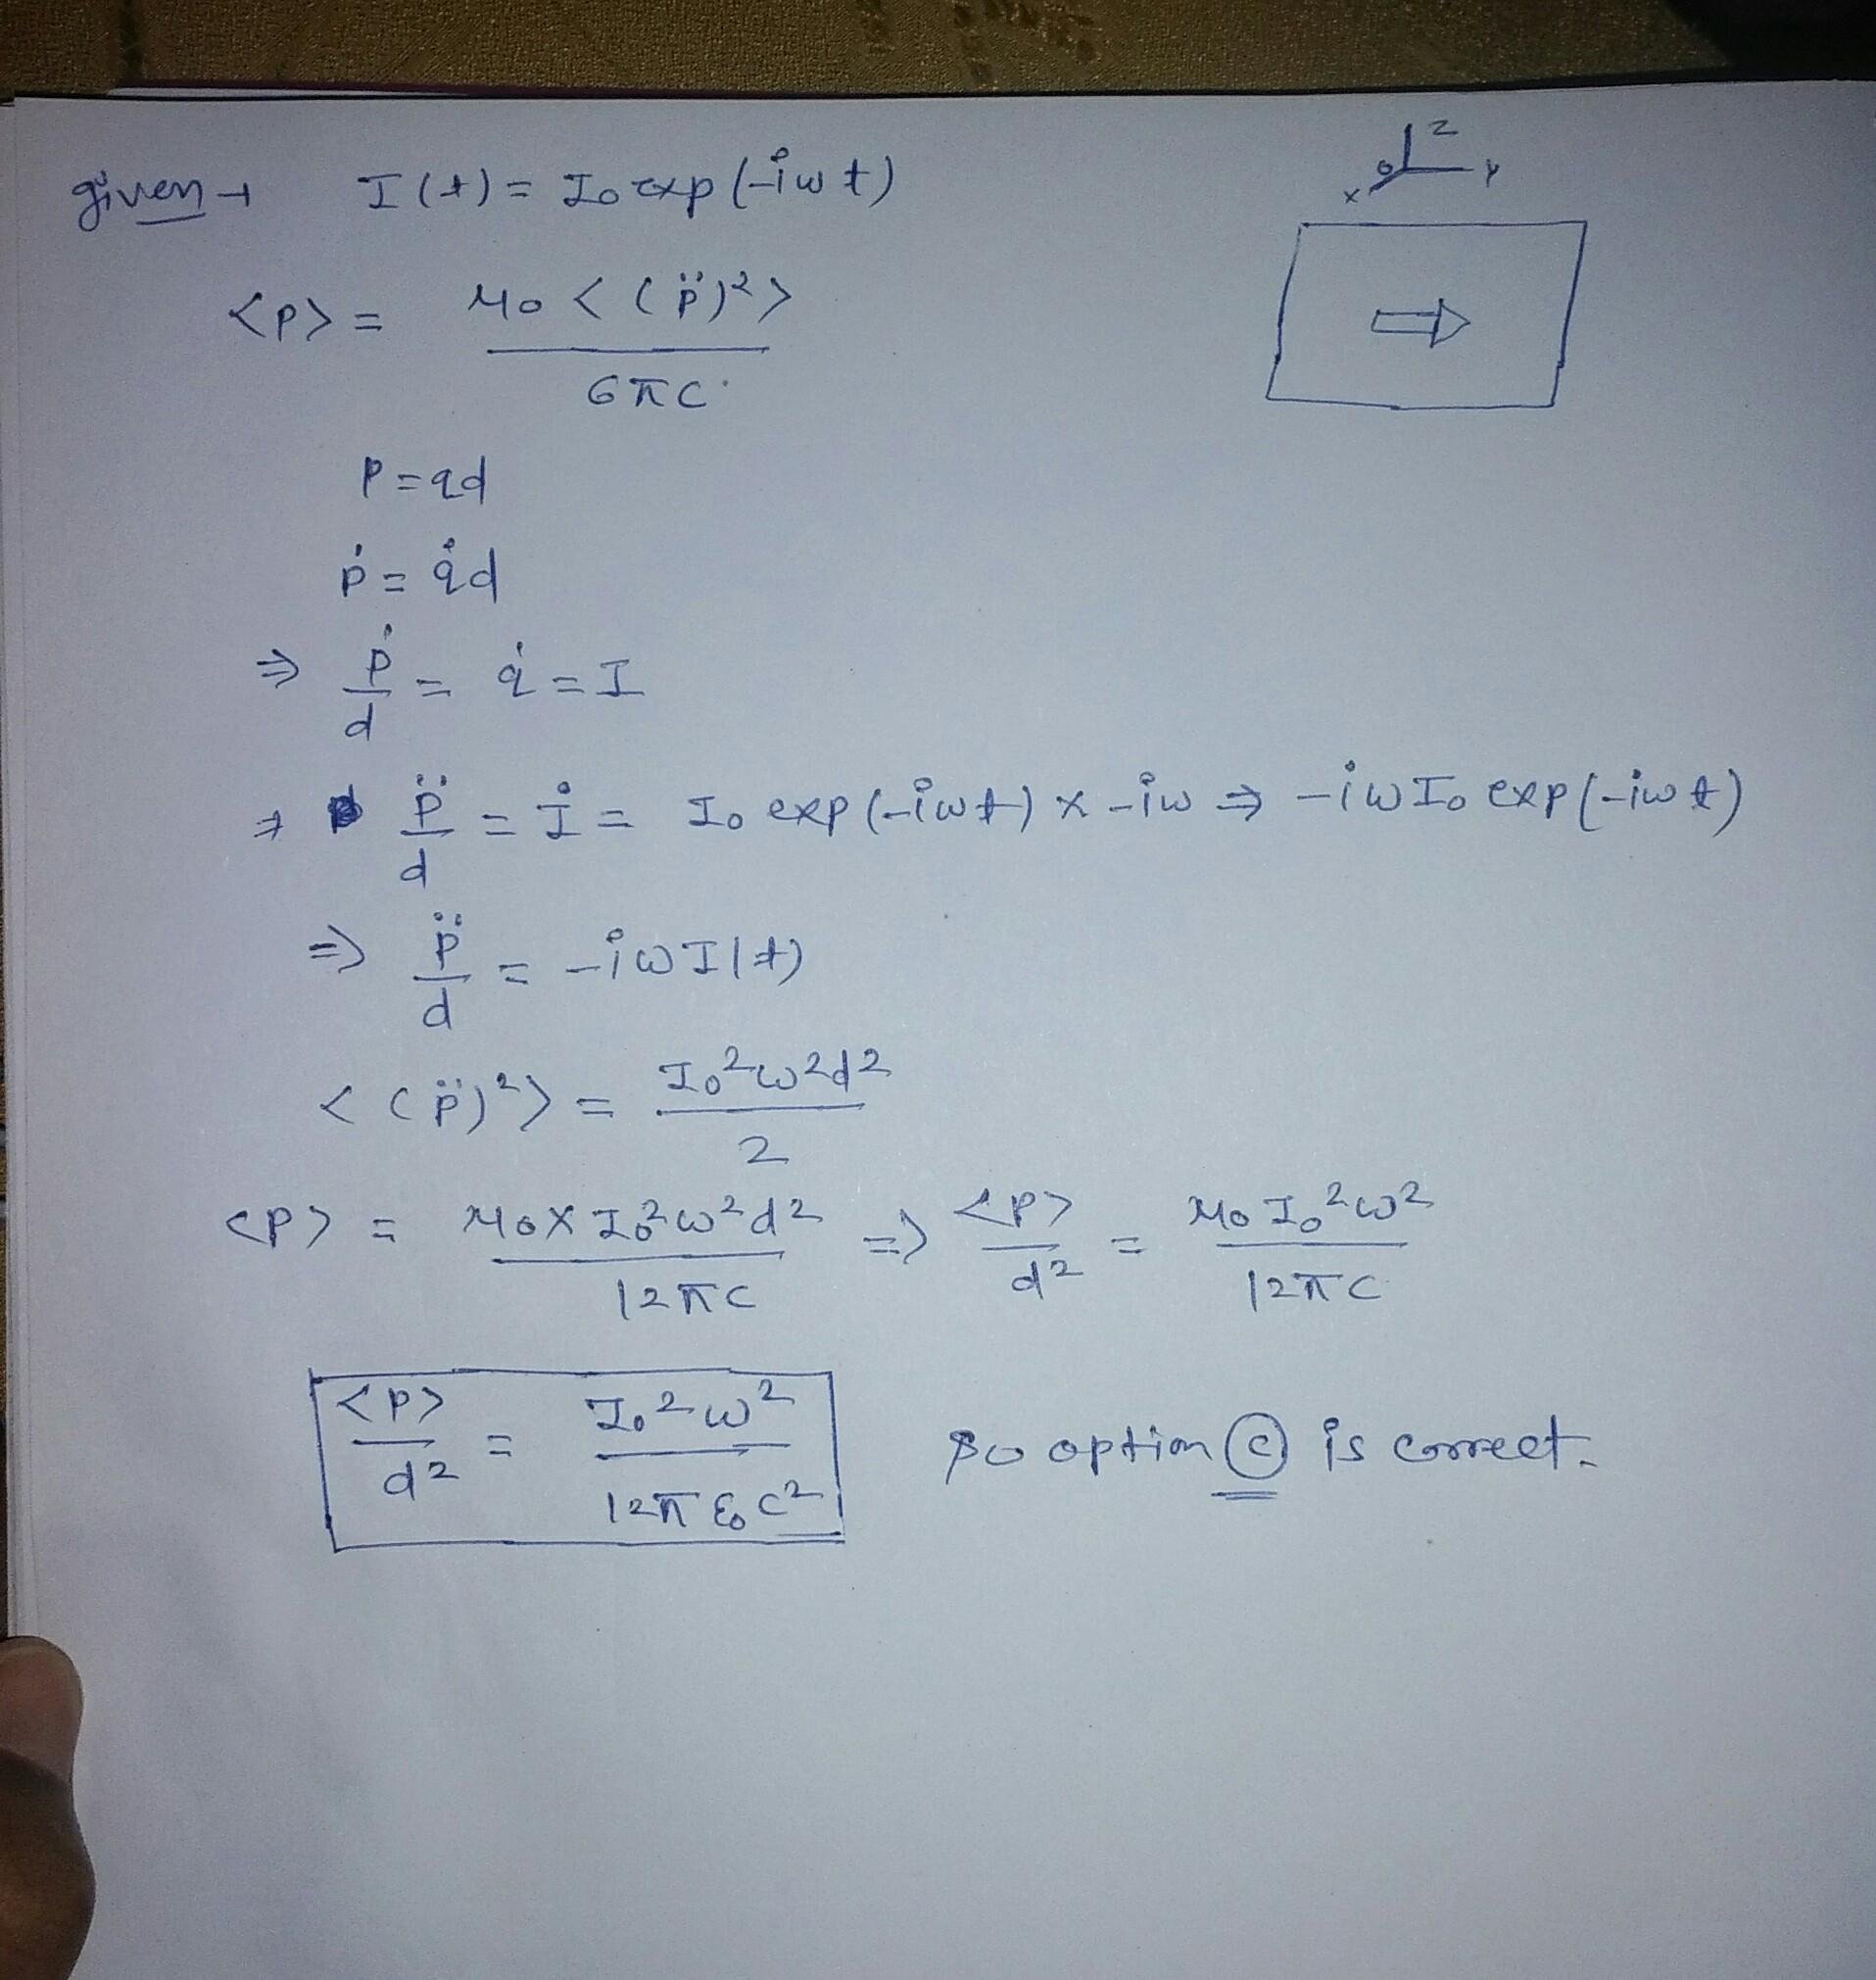 given → I(t) = I₀ exp(-iωt)
z
o y
x
<p> = μ₀ <(p̈)²> / 6πc
p = qd
ṗ = q̇d
⇒ ṗ/d = q̇ = I
⇒ p̈/d = İ = I₀ exp(-iωt) × -iω ⇒ -iωI₀ exp(-iωt)
⇒ p̈/d = -iωI(t)
<(p̈)²> = I₀²ω²d² / 2
<p> = μ₀ × I₀²ω²d² / 12πc ⇒ <p>/d² = μ₀I₀²ω² / 12πc
<p>/d² = I₀²ω² / 12πε₀c² so option (c) is correct.